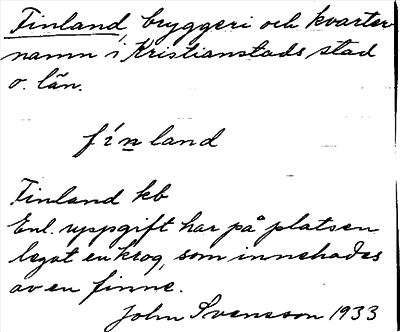 Finland, bryggeri och kvarter-
namn i Kristianstads stad
o. län.
fínland
Finland kb
Enl. uppgift har på platsen
legat en krog, som innehades
av en finne.
John Svensson 1933